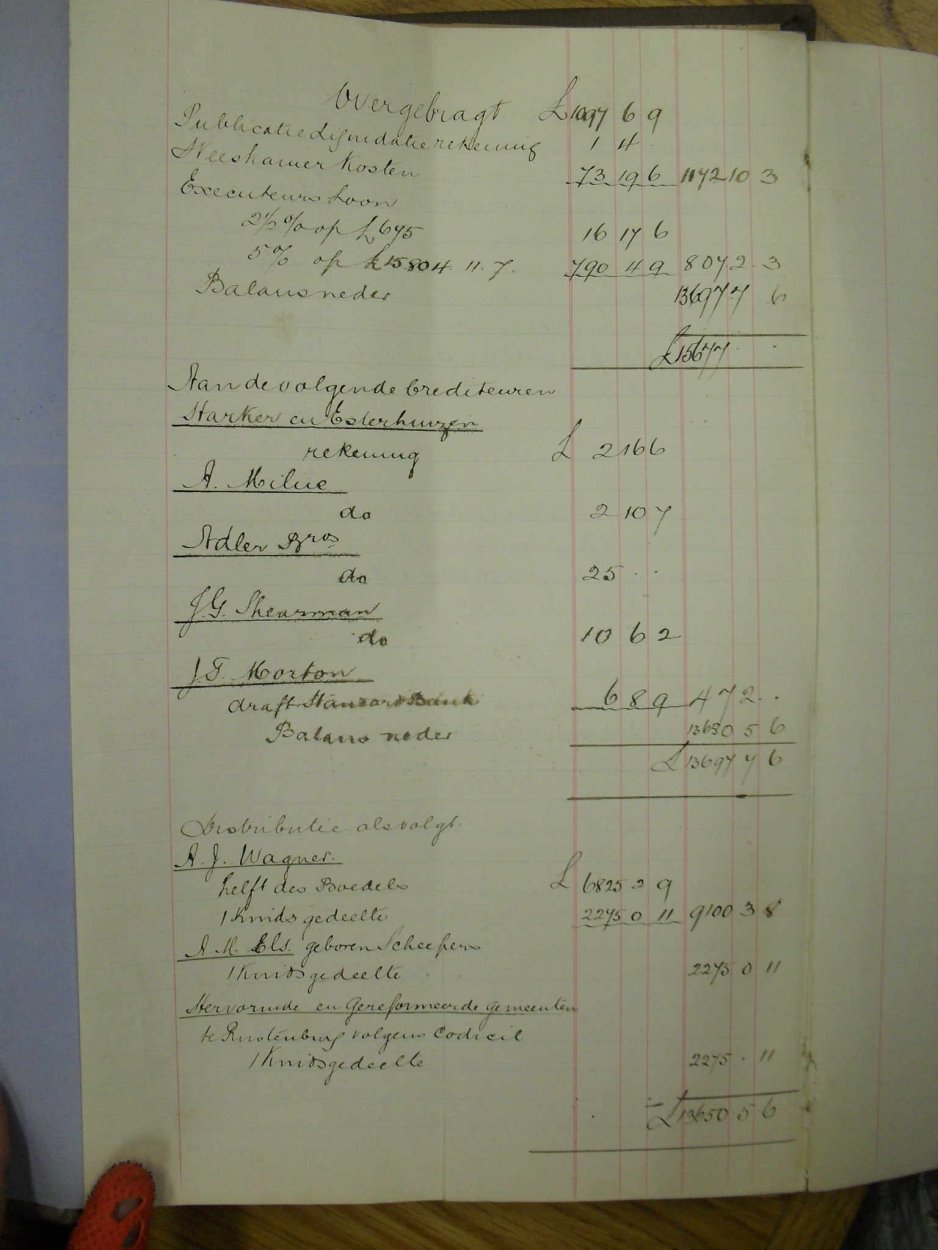 Overgebragt £1097 6 9
Publicatie Liquidatierekening 1 4
Weeskamer Kosten 73 19 6 1172 10 3
Executeurs Loon
2½% op £675 16 17 6
5% op £15804. 11. 7. 790 4 9 807 2 3
Balans neder 13697 7 6
£15677 . .
Aan de volgende Crediteuren
Starker en Esterhuyzen
rekening £ 2 16 6
A. Milne
do 2 10 7
Adler Bros
do 25 . .
J.G. Shearman
do 10 6 2
J.T. Morton
draft Standard Bank 6 8 9 47 2 .
Balans neder 13650 5 6
£13697 7 6
Distributie als volgt
A. J. Wagner.
helft des Boedels £ 6825 2 9
1 Kindsgedeelte 2275 0 11 9100 3 8
A. M. Els. geboren Scheepers
1 Kindsgedeelte 2275 0 11
Hervormde en Gereformeerde gemeenten
te Rustenburg volgens Codicil
1 Kindsgedeelte 2275 . 11
£13650 5 6